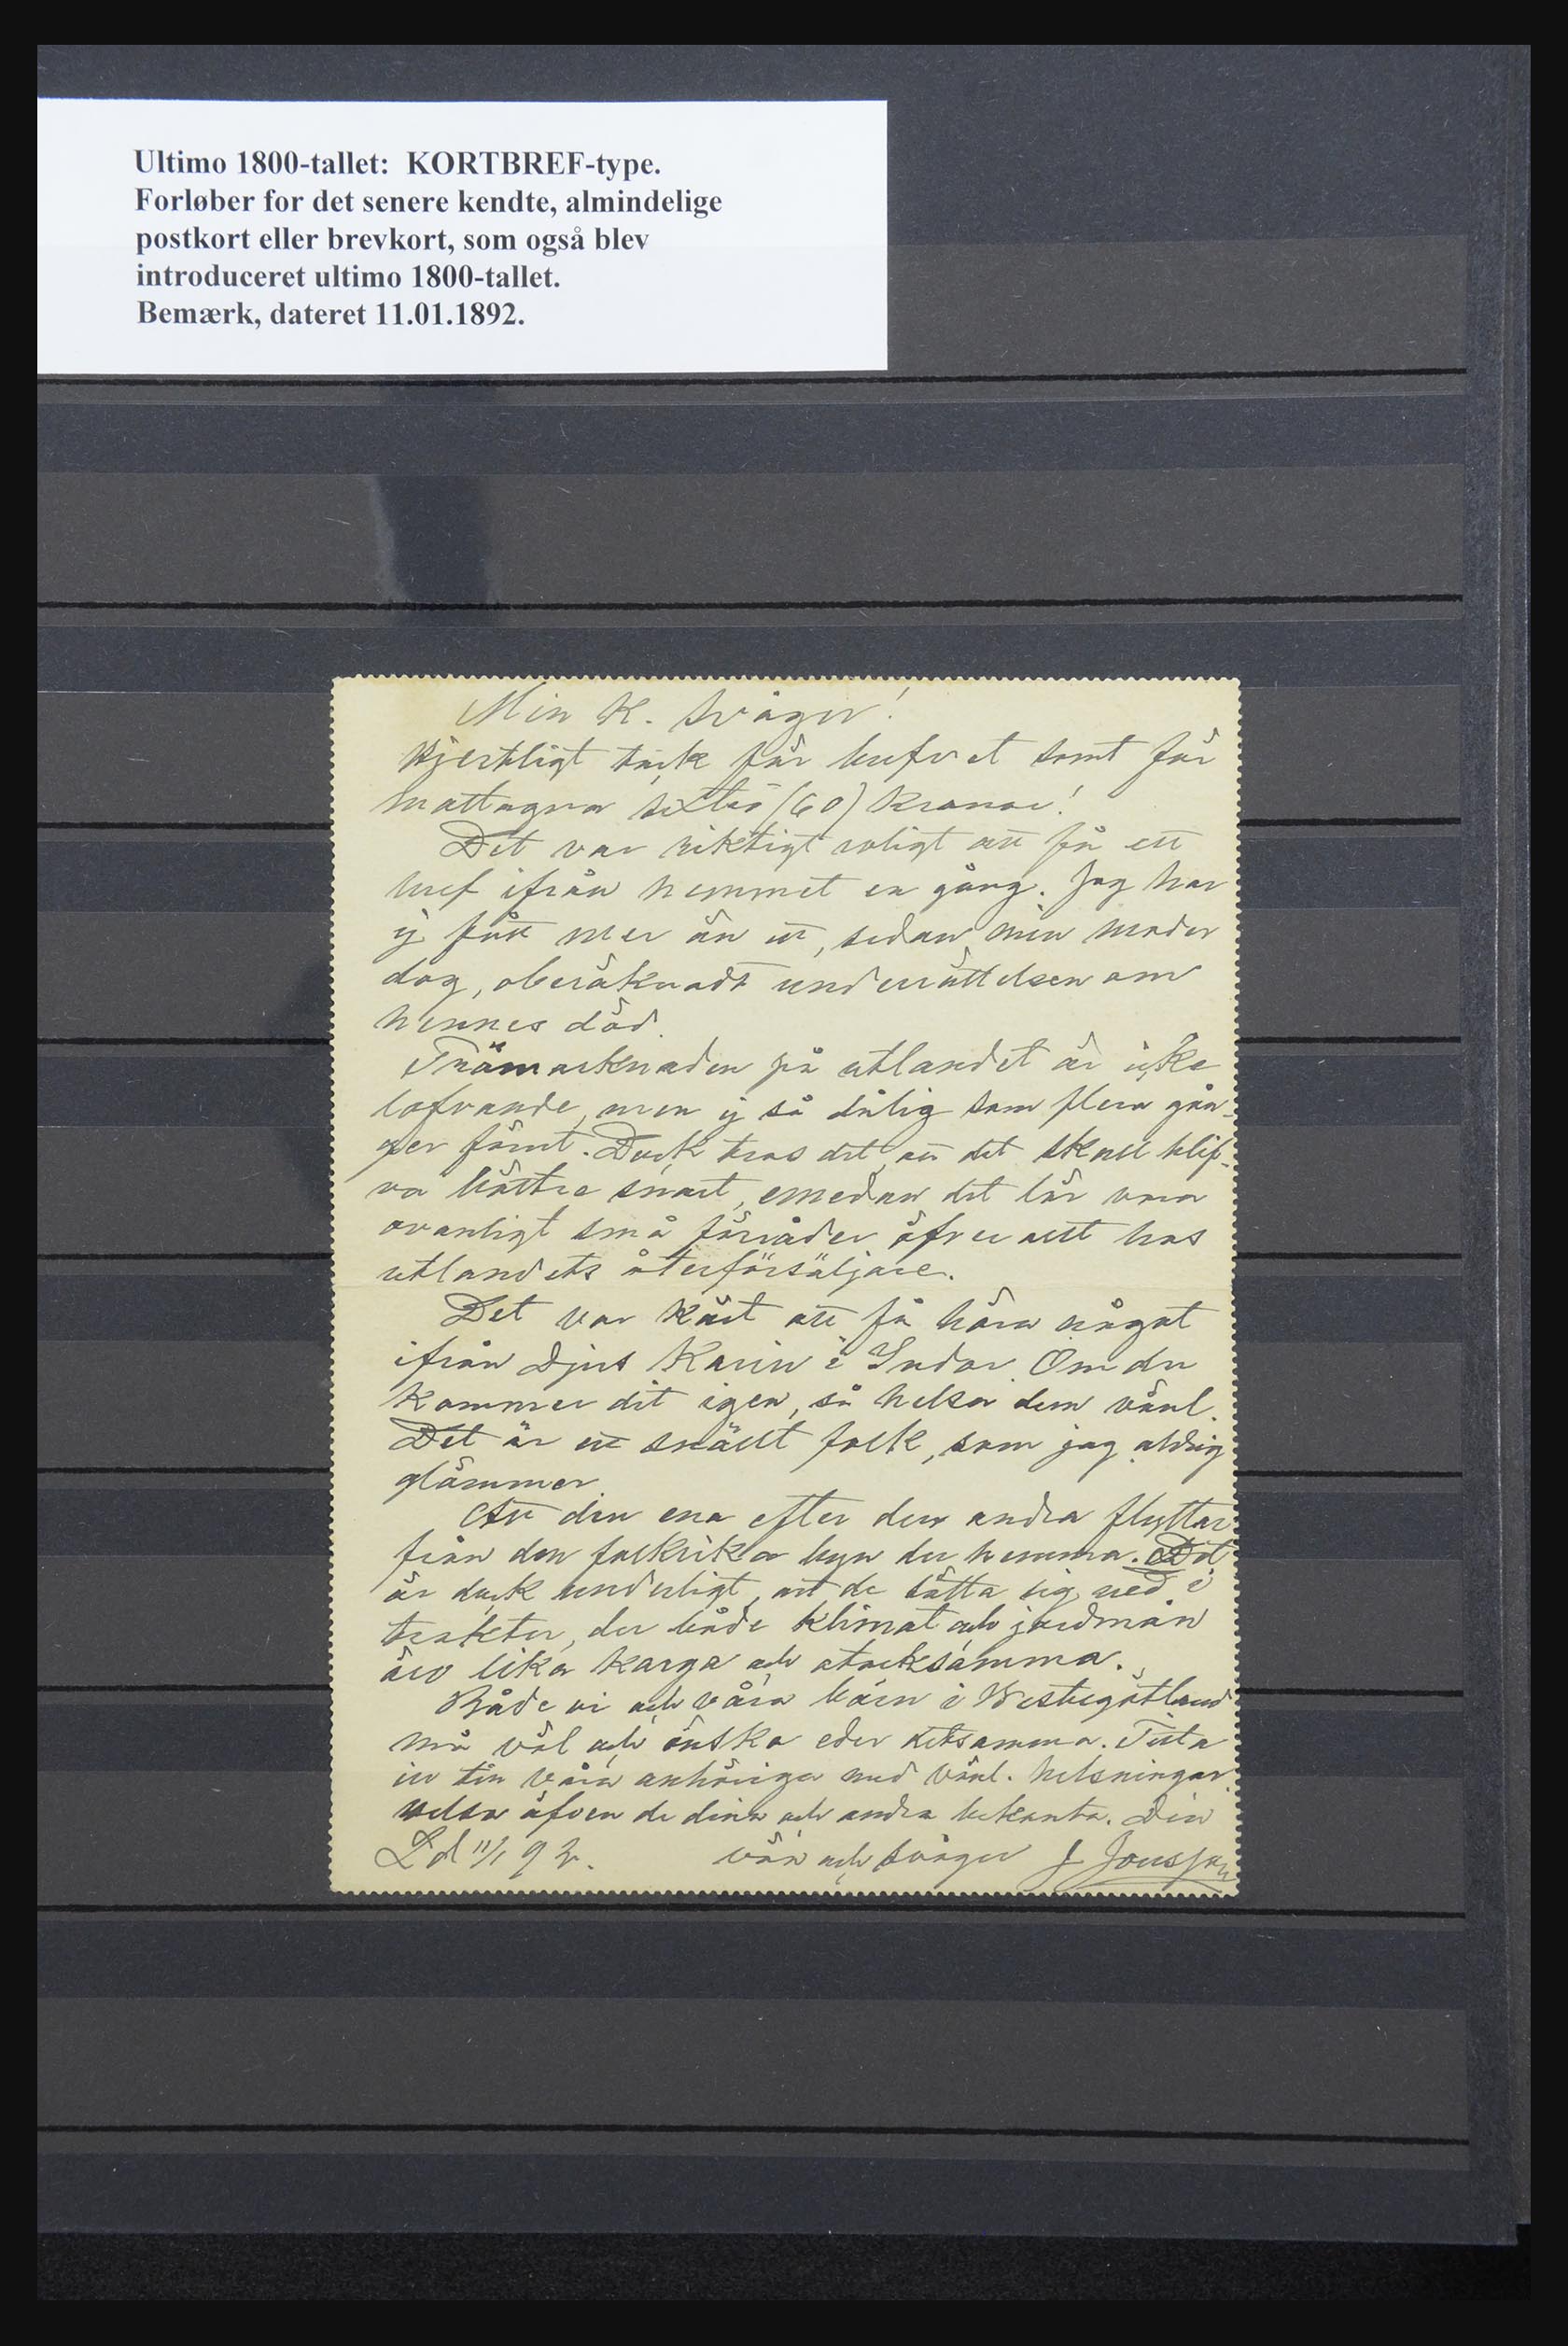 Ultimo 1800-tallet: KORTBREF-type.
Forløber for det senere kendte, almindelige
postkort eller brevkort, som også blev
introduceret ultimo 1800-tallet.
Bemærk, dateret 11.01.1892.
Min K. Svåger!
Hjertligt tack för brefvet samt för
mottagna sextio (60) Kronor!
Det var riktigt roligt att få ett
bref ifrån hemmet en gång. Jag har
ej fått mer än ett, sedan min moder
dog, oberäknadt underrättelsen om
hennes död.
Trämarknaden på utlandet är icke
lofvande, men ej så dålig som flera gån-
ger förut. Dock tros det, att det skall blif-
va bättre snart, emedan det lär vara
ovanligt små förråder öfver allt hos
utlandets återförsäljare.
Det var kärt att få höra något
ifrån Djus Karin i Indor. Om du
kommer dit igen, så helsa dem vänl.
Det är ett snällt folk, som jag aldrig
glömmer.
Att den ena efter den andra flyttar
från den folkrika byn der hemma. Det
är dock underligt, att de sätta sig ned i
trakter, der både klimat och jordmån
äro lika karga och otacksamma.
Både vi och våra börn i Westergötland
må väl och önska eder detsamma. Titta
in till våra anhöriga med vänl. helsningar.
Helsa äfven de dina och andra bekanta. Din
Ld 11/1 92. vän och svåger J Jonsson